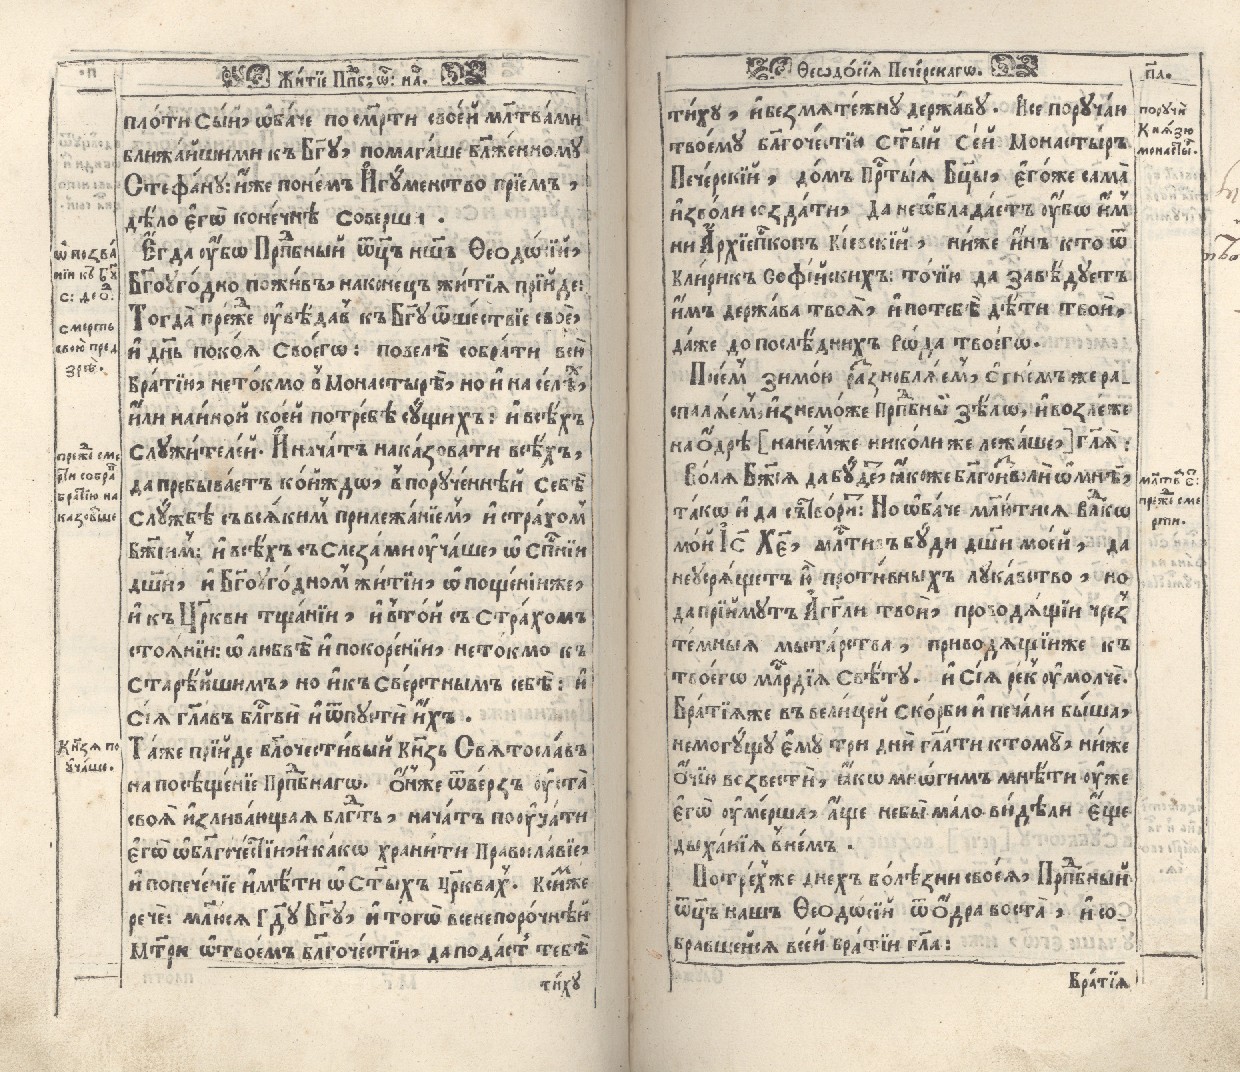 Жи́тїе Прпⷣб: ѿ: на́ш.
пло́ти сы́й, ѻ҆ба́че по смр҃ти свое́й мл҃твами
ближа́йшими къ Бг҃у, помага́ше бл҃же́нному
Стефа́ну: и҆́же по не́мъ И҆гꙋ́менство прїе́мъ,
дѣ́ло є҆гѡ̀ коне́чнѣ совершѝ.
Є҆гда̀ ᲂу҆́бо Прпⷣбный ѿц҃ъ нш҃ъ Ѳеодо́сїй,
Бг҃оуго́дно пожи́въ, на коне́цъ житїѧ̀ прїи́де:
Тогда̀ пре́жⷣе ᲂу҆вѣ́давъ къ Бг҃у ѿше́ствїе своѐ,
и҆ дн҃ь поко́ѧ своегѡ̀: повелѣ̀ собра́ти всю̀
бра́тїю, не то́кмо в̾ Монастырѣ̀, но и҆ на се́лѣⷯ
и҆лѝ на и҆но́й ко́ей потре́бѣ сꙋ́щихъ: и҆ всѣ́хъ
слꙋжи́телей. И҆ нача́тъ наказова́ти всѣ́хъ,
да пребыва́етъ ко́йждѡ, в̾ порꙋче́ннѣй себѣ̀
слꙋ́жбѣ съ всѧ́кимъ прилѣжа́нїемъ, и҆ стра́хомъ
Бж҃їимъ: и҆ всѣ́хъ съ слеза́ми ᲂу҆ча́ше, ѡ҆ сп҃се́нїи
дш҃и, и҆ Бг҃оуго́дномъ житїѝ, ѡ҆ поще́нїи же,
и҆ къ Цр҃кви тща́нїи, и҆ в̾ то́й съ стра́хомъ
стоѧ́нїи: ѡ҆ любвѐ и҆ покоре́нїи, не то́кмо къ
старѣ́йшимъ, но и҆ къ све́рстнымъ себѣ̀: и҆
сїѧ̀ гл҃авъ бл҃гвѝ и҆ ѿпꙋстѝ и҆́хъ.
Та́же прїи́де бл҃гочести́вый кн҃зь Свѧтосла́въ
на посѣще́нїе Прпⷣбнагѡ. Ѻ҆́нже ѿве́рзъ ᲂу҆ста̀
своѧ̀ и҆злива́ющаѧ бл҃гⷣть, нача́тъ поᲂуча́ти
є҆гѡ̀ ѡ҆ бл҃гоче́стїи, и҆ ка́кѡ храни́ти Правосла́вїе,
и҆ попече́нїе и҆мѣ́ти ѡ҆ ст҃ы́хъ цр҃квахъ. К симⷨже
речѐ: мл҃юсѧ Гдⷭ҇у Бг҃у, и҆ тогѡ̀ всенепоро́чнѣй
Мт҃ри ѡ҆ твое́мъ бл҃гоче́стїи, да пода́стъ тебѣ̀
ти́хꙋ
п҃.
ѿ возва́
нїи къ Бг҃ꙋ
с: Ѳео:
смерть
свою̀ пред
зрѣ̀.
пре́жⷣе сме
рти собра̀
бра́тїю на
казо́ваше
Кн҃зѧ по
ᲂу҆ча́ше.
Ѳеодо́сїѧ Пече́рскагѡ.
п҃а.
ти́хꙋ, и҆ безмѧте́жнꙋ держа́вꙋ. И҆ се порꙋча́ю
твоемꙋ̀ бл҃гоче́стїю ст҃ы́й се́й Монасты́рь
Пече́рскїй, до́мъ Прⷭ҇ты́ѧ Бц҃ы, є҆го́же сама̀
и҆зво́ли созда́ти, Да не ѡ҆блада́етъ ᲂу҆́бѡ и҆́мъ
ни А҆рхїепⷭ҇копъ Кі́евскїй, ниже́ и҆́нъ кто̀ ѿ
кли́рикъ Софі́йскихъ: то́чїю да завѣ́дꙋетъ
и҆́мъ держа́ва твоѧ̀, и҆ по тебѣ̀ дѣ́ти твоѝ,
да́же до послѣ́днихъ ро́да твоегѡ̀.
По се́мъ зимо́ю разновлѧ́емъ, ѻ҆гне́мъ же ра-
спалѧ́емъ, и҆знемо́же Прпⷣбны́й зѣлѡ̀, и҆ возле́же
на ѻ҆́дрѣ [на не́мъже николи́же лежа́ше,] гл҃ѧ:
Во́лѧ Бж҃їѧ да бꙋ́детъ, ꙗ҆́коже бл҃гоизво́ли ѡ҆ мнѣ̀,
та́кѡ и҆ да сътвори́тъ: Но ѻ҆ба́че мл҃ю́тисѧ влⷣкѡ
мо́й І҆с҃ Хе҃, млⷭ҇тивъ бꙋ́ди дш҃и мое́й, да
не усрѧ́щетъ ю҆̀ проти́вныхъ лꙋка́вство, но
да прїи́мꙋтъ А҆́гг҃ли твоѝ, проводѧ́щїи чрезъ
те́мныѧ мыта́рства, приводѧ́щїиже къ
твоегѡ̀ млⷭ҇рдїѧ свѣ́тꙋ. и҆ сїѧ̀ ре́къ ᲂу҆молчѐ.
Бра́тїѧже въ вели́цей ско́рби и҆ печа́ли бы́ша,
немогꙋ́щꙋ є҆мꙋ̀ трѝ дни̑ гл҃ати к томꙋ̀, ниже́
ѻ҆́чїю возвестѝ, ꙗ҆́кѡ мнѡ́гимъ мнѣ́ти ᲂу҆же
є҆гѡ̀ ᲂу҆ме́рша, а҆́ще не бы̀ ма́ло ви́дѣли є҆ще
дыха́нїѧ в̾ не́мъ.
По тре́хъже дне́хъ болѣ́зни своеѧ̀, Прпⷣбный
ѿц҃ъ нашъ Ѳеодо́сїй ѿ ѻ҆дра̀ воста̀, и҆ со-
бра́вшейсѧ все́й бра́тїи гл҃а:
Бра́тїѧ
порꙋчѝ
Кнѧ́зю
монасты́рⷭ.
мл҃тва є҆гѡ̀:
пре́жⷣе сме
рти.